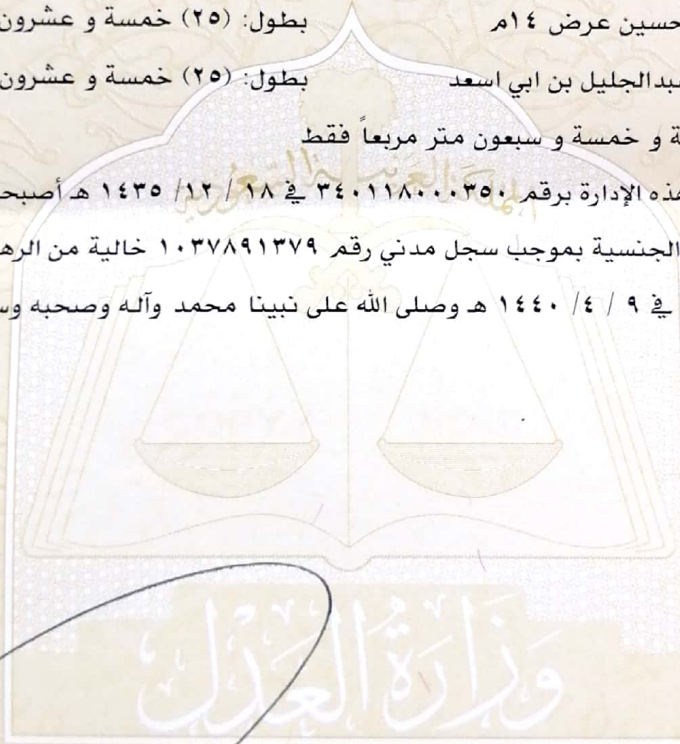 حسين عرض ١٤م بطول: (٢٥) خمسة و عشرون
عبدالجليل بن ابي اسعد بطول: (٢٥) خمسة و عشرون
ة و خمسة و سبعون متر مربعاً فقط
هذه الإدارة برقم ٣٤٠١١٨٠٠٠٣٥٠ في ١٨ / ١٢/ ١٤٣٥ هـ أصبحـ
الجنسية بموجب سجل مدني رقم ١٠٣٧٨٩١٣٧٩ خالية من الرهـ
في ٩ / ٤/ ١٤٤٠ هـ وصلى الله على نبينا محمد وآله وصحبه وسـ
المملكة العربية السعودية
وزارة العدل